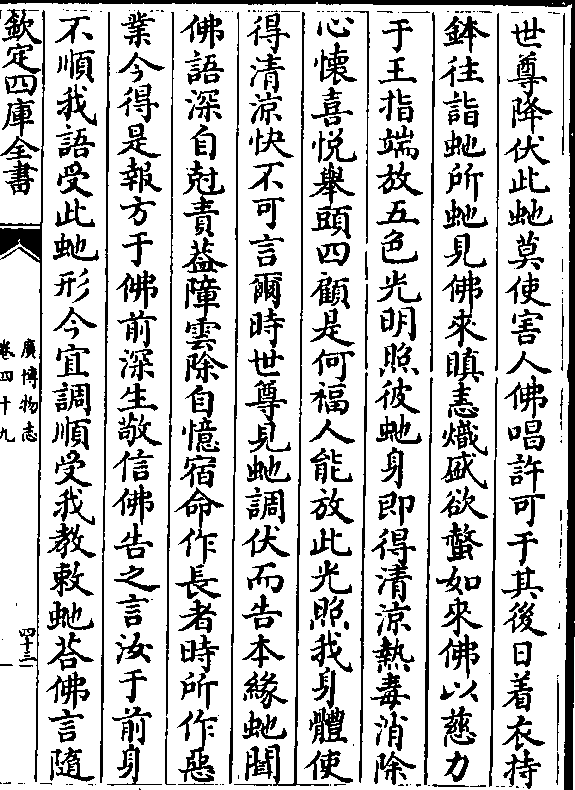 世尊降伏此虵莫使害人佛唱許可于其後日着衣持
鉢往詣虵所虵見佛來瞋恚熾盛欲螫如來佛以慈力
于王指端放五色光明照彼虵身即得清涼熱毒消除
心懷喜悅舉頭四顧是何福人能放此光照我身體使
得清涼快不可言爾時世尊見虵調伏而告本緣虵聞
佛語深自尅責葢障雲除自憶宿命作長者時所作惡
業今得是報方于佛前深生敬信佛告之言汝于前身
不順我語受此虵形今宜調順受我教敕虵荅佛言隨
欽定四庫全書
廣博物志
卷四十九
四十三